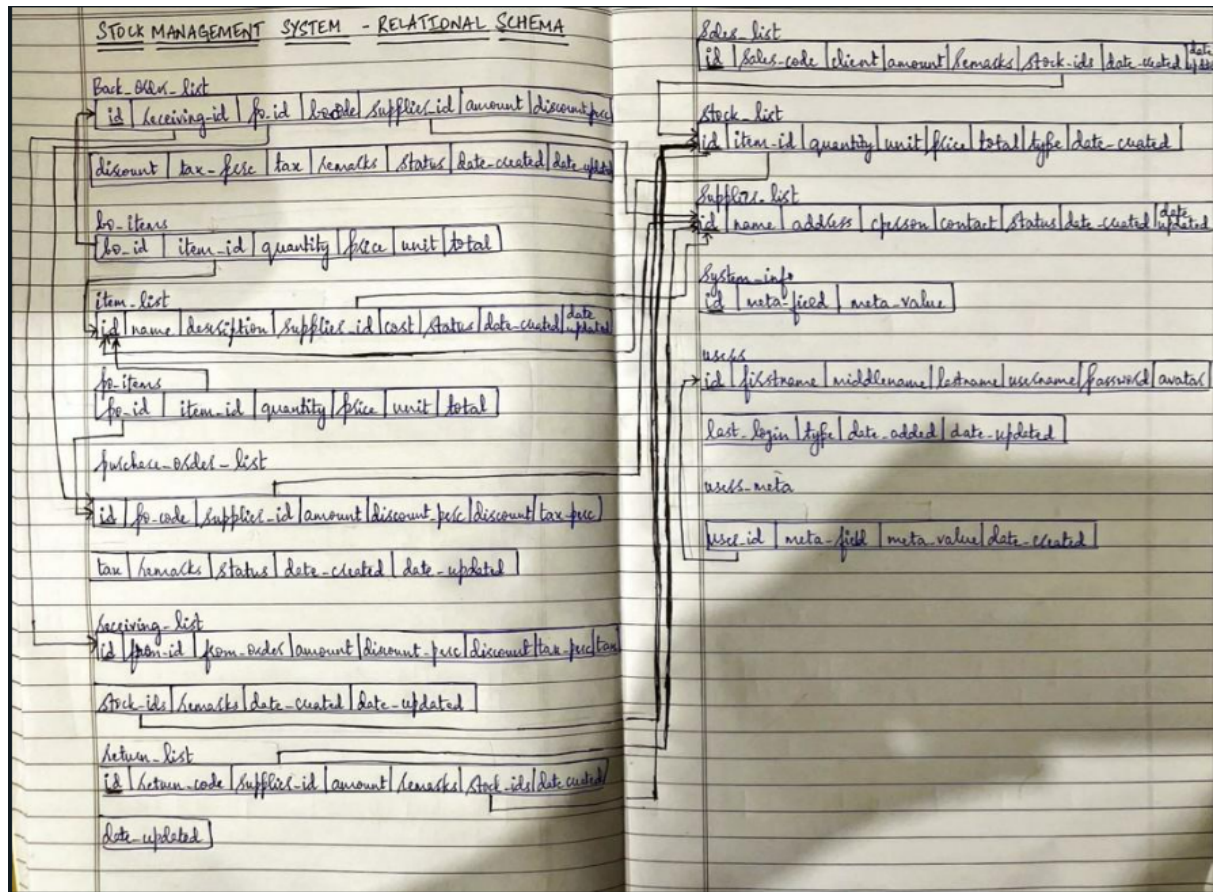 STOCK MANAGEMENT SYSTEM - RELATIONAL SCHEMA
Back_order_list
id | receiving-id | po-id | bo-code | supplier_id | amount | discount-perc
discount | tax-perc | tax | remarks | status | date-created | date-updated
bo_items
bo_id | item-id | quantity | price | unit | total
item_list
id | name | description | supplier_id | cost | status | date-created | date updated
po_items
po-id | item-id | quantity | price | unit | total
purchase_order_list
id | po-code | supplier_id | amount | discount_perc | discount | tax-perc
tax | remarks | status | date-created | date-updated
receiving_list
id | from-id | from-order | amount | discount-perc | discount | tax-perc | tax
stock-ids | remarks | date-created | date-updated
return_list
id | return-code | supplier-id | amount | remarks | stock-ids | date created
date-updated
Sales_list
id | sales-code | client | amount | remarks | stock-ids | date-created | date
stock_list
id | item-id | quantity | unit | price | total | type | date-created
supplier_list
id | name | address | cperson | contact | status | date-created | date updated
System_info
id | meta-field | meta-value
users
id | firstname | middlename | lastname | username | password | avatar
last_login | type | date-added | date-updated
users_meta
user_id | meta-field | meta_value | date-created